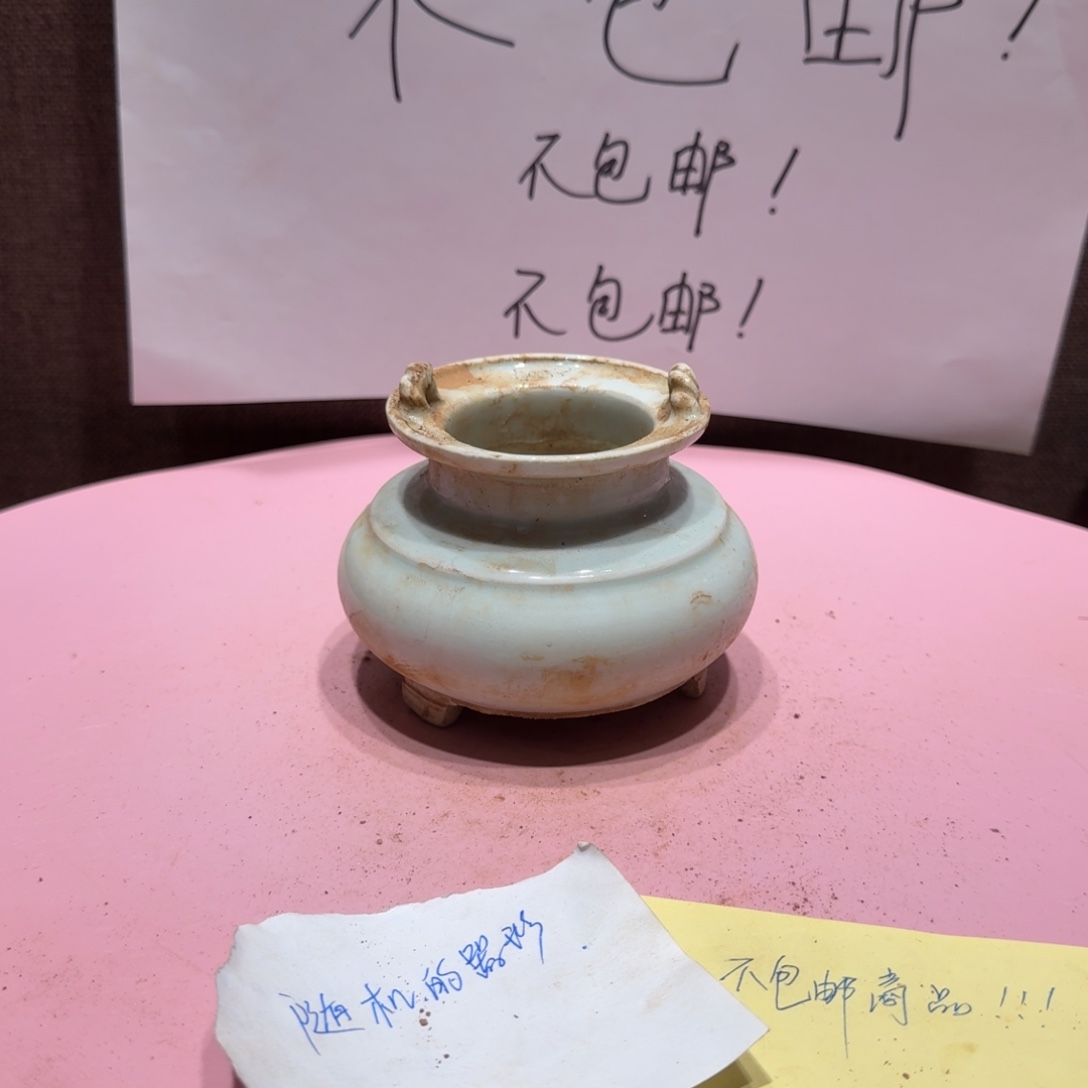 不包邮！
不包邮！
不包邮！
随机的器形.
不包邮商品!!!